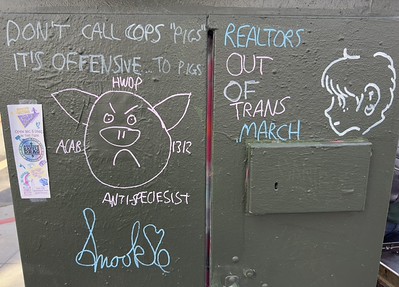 DON'T CALL COPS "PIGS
IT'S OFFENSIVE...TO PIGS
HWDP
ACAB
1312
ANTI-SPECIESIST
Smook
REALTORS
OUT
OF
TRANS
MARCH